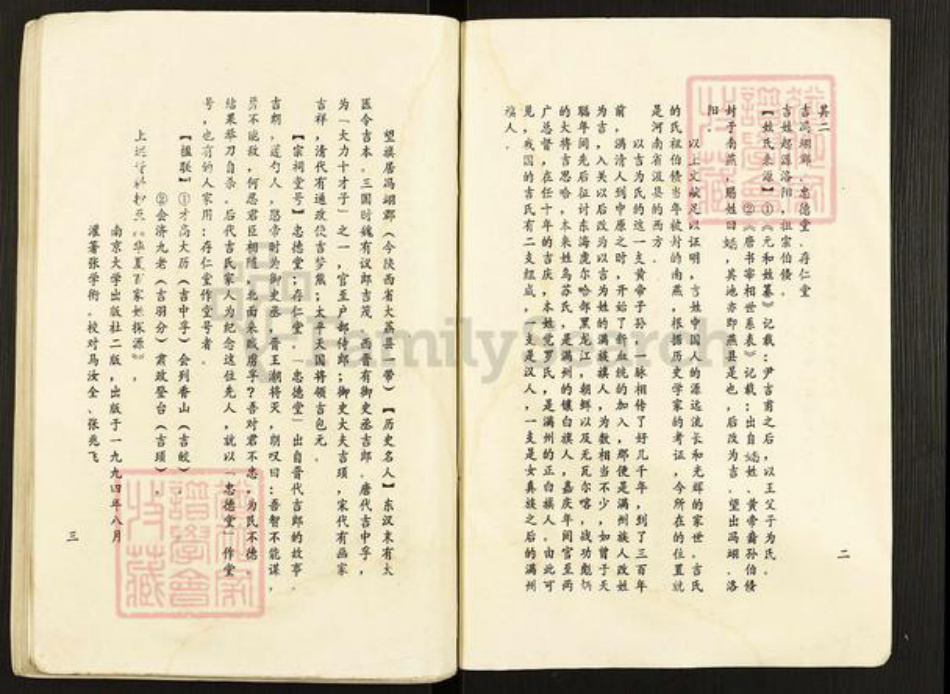 其二
吉冯翊郡、忠德堂、存仁堂
吉姓起源洛阳，祖宗伯倏
【姓氏来源】①《元和姓纂》记载：尹吉甫之后，以王父子为氏。
②《唐书宰相世系表》记载：出自姞姓、黄帝裔孙伯倏
封于南燕，赐姓曰姞，其地亦即燕县是也，后改为吉。望出冯翊、洛
阳。
以上文献足以证明，吉姓中国人的源远流长和光辉的家世。吉氏
的氏祖伯倏当年被封的南燕，根据历史学家的考证，今所在的位置就
是河南省汲县的西方。
以吉为氏的这一支黄帝子孙，一脉相传了好几千年，到了三百年
前，满清人到中原之时，开始了新血统的加入，那便是满州族人改姓
为吉，入关以后改为以吉为姓的满族人，为数相当不少，如曾于天
聪年间先后征讨东海虎尔哈部黑龙江、朝鲜以及无瓦尔喀，战功彪炳
的大将吉思哈，本来姓乌苏氏，是满州的镶白旗人，嘉庆年间官至两
广总督，在任十年的吉庆，本姓觉罗氏，是满州的正白旗人。由此可
见，我国的吉氏有二支组成，一支是汉人，一支是女真族之后的满州
旗人。
二
望族居冯翊郡（今陕西省大荔县一带）【历史名人】东汉末有太
医令吉本。三国时魏有议郎吉茂。西晋有御史丞吉郎。唐代吉中孚，
为「大力十才子」之一，官至户部侍郎；御史大夫吉顼，宋代有画家
吉祥，清代有通政使吉梦熊；太平天国将领吉包元。
【宗祠堂号】忠德堂；存仁堂。「忠德堂」出自晋代吉郎的故事。
吉朗，莲勺人，愍帝时为御史丞，晋王潮将灭，朗叹曰：吾智不能谋，
勇不能敌，何忍君臣相随，北面来贼虏乎？吾对君不忠，为民不德。
结果举刀自杀。后代吉氏家人为纪念这位先人，就以「忠德堂」作堂
号，也有的人家用：存仁堂作堂号者。
【楹联】①才高大历（吉中孚）会列香山（吉皎）。
②会济九老（吉羽分）肃政登台（吉顼）。
上述资料抄至《华夏百家姓探源》，
南京大学出版社二版，出版于一九九四年八月
灌著张学衔、校对马汝全、张兆飞
三
FamilySearch